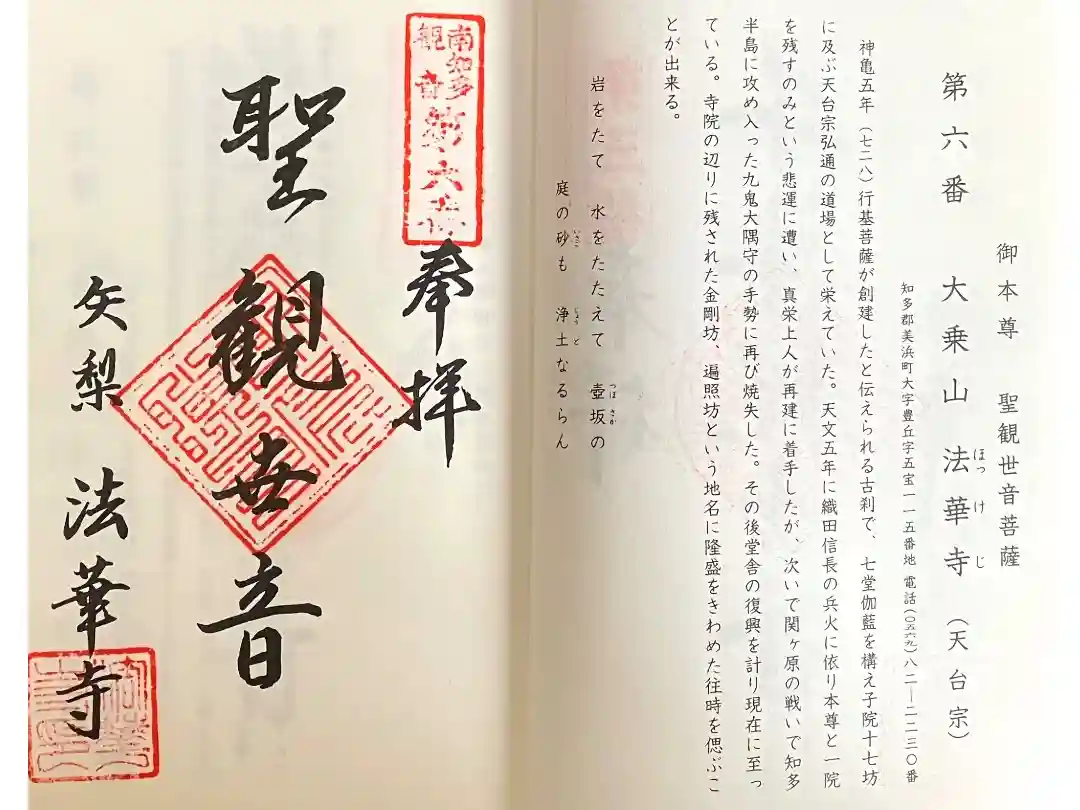 御本尊　聖観世音菩薩
第六番　大乗山　法華寺（天台宗）
ほっけじ
知多郡美浜町大字豊丘字五宝一一五番地　電話（〇五六九）八二―二二三〇番
神亀五年（七二八）行基菩薩が創建したと伝えられる古刹で、七堂伽藍を構え子院十七坊
に及ぶ天台宗弘通の道場として栄えていた。天文五年に織田信長の兵火に依り本尊と一院
を残すのみという悲運に遭い、真栄上人が再建に着手したが、次いで関ヶ原の戦いで知多
半島に攻め入った九鬼大隅守の手勢に再び焼失した。その後堂舎の復興を計り現在に至っ
ている。寺院の辺りに残された金剛坊、遍照坊という地名に隆盛をきわめた往時を偲ぶこ
とが出来る。
岩をたて　水をたたえて　壺坂の
つぼさか
庭の砂も　浄土なるらん
いさご　じょうど
南知多
観音
第六番
奉拝
聖観世音
矢梨　法華寺